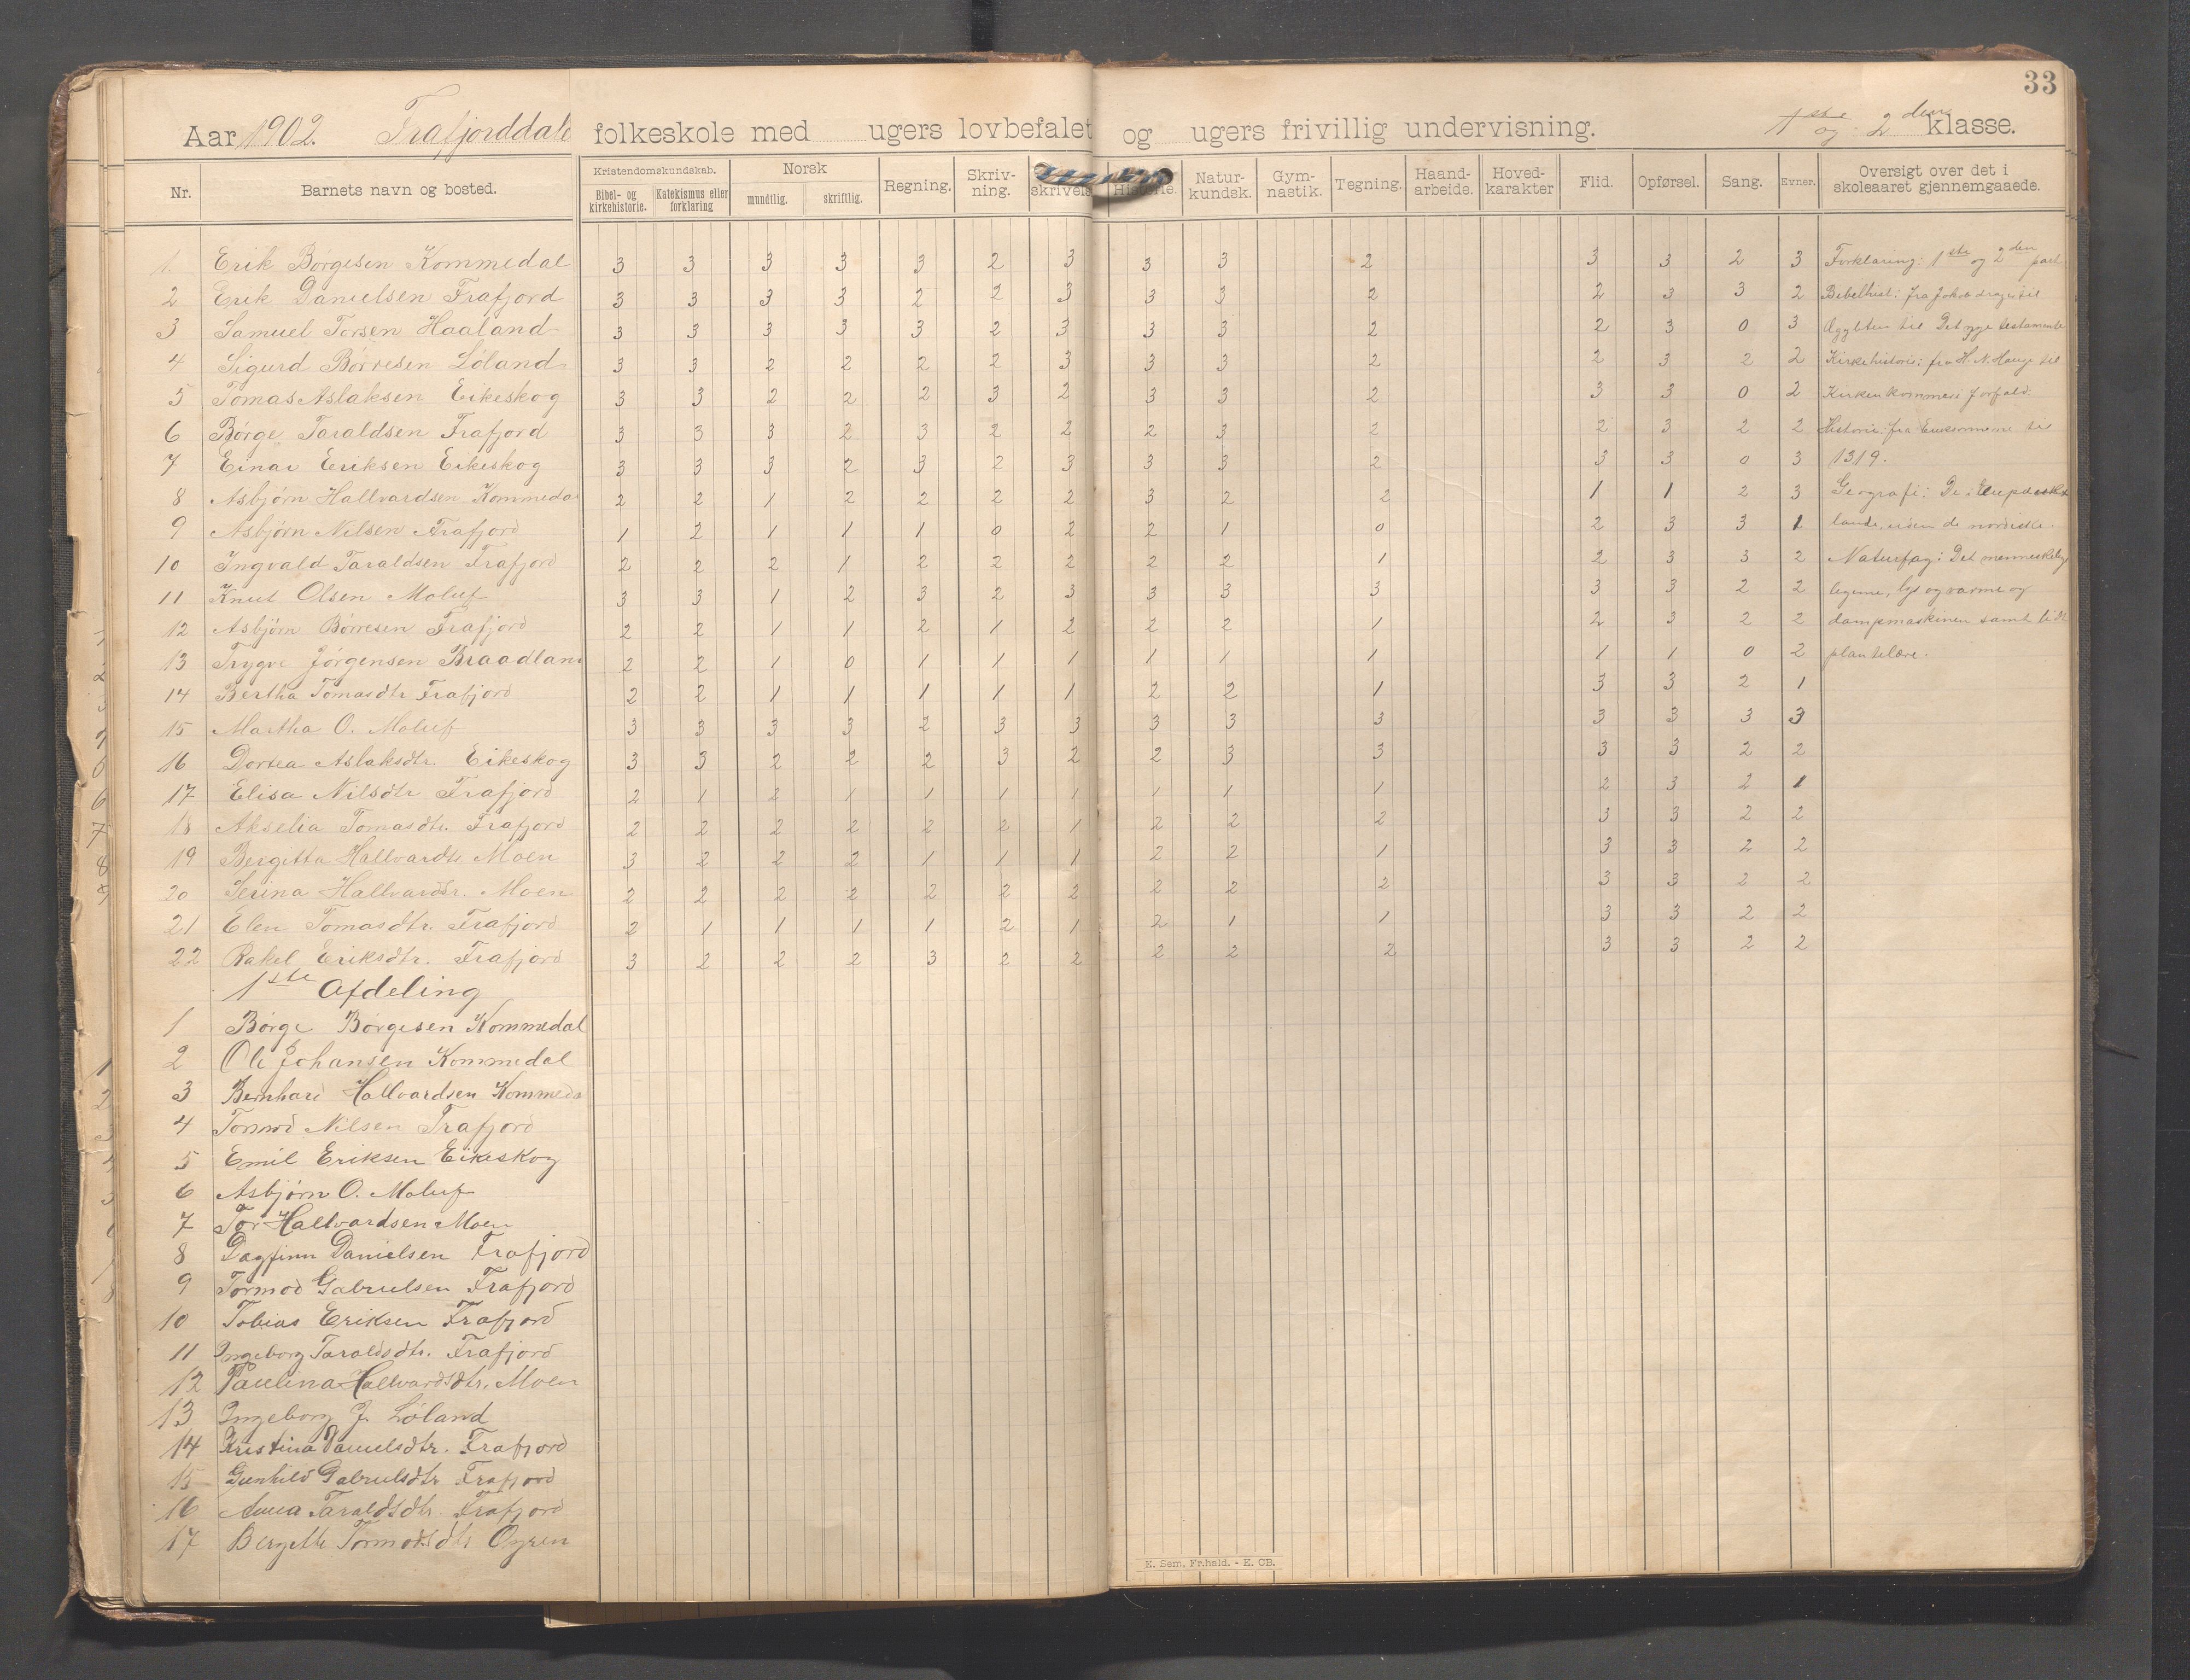 33
Aar 1902. Frafjorddale folkeskole med ugers lovbefalet og ugers frivillig undervisning. 1ste og 2den klasse.
Nr. Barnets navn og bosted. Kristendomskundskab. Bibel- og kirkehistorie. Katekismus eller forklaring Norsk mundtlig. skriftlig. Regning. Skriv-ning. skrivels Historie. Natur-kundsk. Gym-nastik. Tegning. Haand-arbeide. Hoved-karakter Flid. Opførsel. Sang. Evner. Oversigt over det i skoleaaret gjennemgaaede.
1. Erik Børgesen Kommedal 3 3 3 3 3 2 3 3 3 2 3 3 2 3 Forklaring: 1ste og 2den part
2 Erik Danielsen Frafjord 3 3 3 3 2 2 3 3 3 2 2 3 3 2 Bibelhist: fra Jakob drager til
3 Samuel Torsen Haaland 3 3 3 3 3 2 3 3 3 2 2 3 0 3 Ægypten til Det nye testamente
4 Sigurd Børresen Løland 3 3 2 2 2 2 3 3 3 2 2 3 2 2 Kirkehistorie: fra H. N. Hauge til
5 Tomas Aslaksen Eikeskog 3 3 2 2 2 3 2 3 3 2 3 3 0 2 Kirken kommer i forfald.
6 Børge Taraldsen Frafjord 3 3 3 2 3 2 2 2 3 2 2 3 2 2 Historie fra til
7 Einar Eriksen Eikeskog 3 3 3 2 3 2 3 3 3 2 3 3 0 3 1319.
8 Asbjørn Hallvardsen Kommedal 2 2 1 2 2 2 2 3 2 2 1 1 2 3 Geografi: De
9 Asbjørn Nilsen Frafjord 1 2 1 1 1 0 2 2 1 0 2 3 3 1 lande, uden de nordiske.
10 Ingvald Taraldsen Frafjord 2 2 2 1 2 2 2 2 2 1 2 3 3 2 Naturfag: Det menneskelige
11 Knut Olsen Moluf 3 3 1 2 3 2 3 3 3 3 3 3 2 2 legeme, lys og varme og
12 Asbjørn Børresen Frafjord 2 2 1 1 2 1 2 2 2 1 2 3 2 2 dampmaskinen samt lidt
13 Trygve Jørgensen Braadland 2 2 1 0 1 1 1 1 1 1 1 1 0 2 plantelære.
14 Bertha Tomasdtr Frafjord 2 2 1 1 1 1 1 2 2 1 3 3 2 1
15 Martha O. Moluf 3 3 3 3 2 3 3 3 3 3 3 3 3 3
16 Dortea Aslaksdtr. Eikeskog 3 3 2 2 2 3 2 2 3 3 3 3 2 2
17 Elisa Nilsdtr Frafjord 2 1 2 1 1 1 1 1 1 1 2 3 2 1
18 Akselia Tomasdtr. Frafjord 2 2 2 2 2 2 1 2 2 2 3 3 2 2
19 Bergitta Hallvardtr Moen 3 2 2 2 1 1 1 2 2 1 3 3 2 2
20 Serina Hallvardtr. Moen 2 2 2 2 2 2 2 2 2 2 3 3 2 2
21 Elen Tomasdtr. Frafjord 2 1 1 1 1 2 1 2 1 1 3 3 2 2
22 Rakel Eriksdtr. Frafjord 3 2 2 2 3 2 2 2 2 2 3 3 2 2
1ste Afdeling
1 Børge Børgesen Kommedal
2 Ole Johansen Kommedal
3 Bernhard Hallvardsen Kommeda
4 Tormod Nilsen Frafjord
5 Emil Eriksen Eikeskog
6 Asbjørn O. Moluf
7 Tor Hallvardsen Moen
8 Dagfinn Danielsen Frafjord
9 Tormod Gabrielsen Frafjord
10 Tobias Eriksen Frafjord
11 Ingeborg Taraldsdtr. Frafjord
12 Paulina Hallvardsdtr. Moen
13 Ingeborg J. Løland
14 Kristina Danielsdtr. Frafjord
15 Gunhild Gabrielsdtr Frafjord
16 Anna Taraldsdtr. Frafjord
17 Bergitte Tormodsdtr Øyren
E. Sem, Fr.hald. - E. CB.